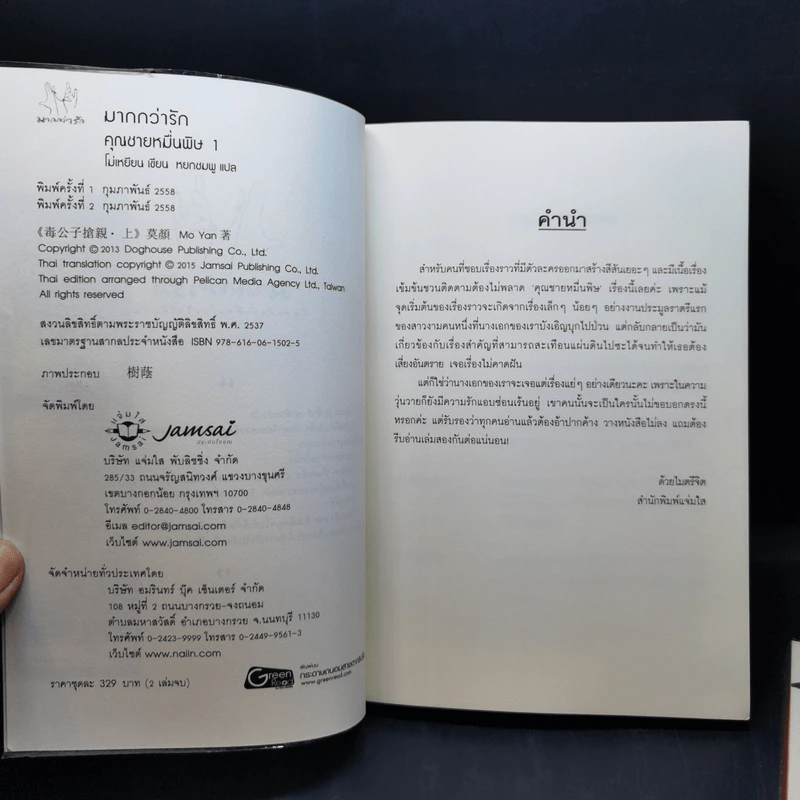 มากกว่ารัก
มากกว่ารัก
คุณชายหมื่นพิษ 1
โม่เหยียน เขียน หยกชมพู แปล
พิมพ์ครั้งที่ 1 กุมภาพันธ์ 2558
พิมพ์ครั้งที่ 2 กุมภาพันธ์ 2558
《毒公子搶親・上》莫顏 Mo Yan 著
Copyright © 2013 Doghouse Publishing Co., Ltd.
Thai translation copyright © 2015 Jamsai Publishing Co., Ltd.
Thai edition arranged through Pelican Media Agency Ltd., Taiwan
All rights reserved
สงวนลิขสิทธิ์ตามพระราชบัญญัติลิขสิทธิ์ พ.ศ. 2537
เลขมาตรฐานสากลประจำหนังสือ ISBN 978-616-06-1502-5
ภาพประกอบ 樹蔭
จัดพิมพ์โดย
แจ่มใส
JAMSAI
Jamsai
บริษัท แจ่มใส พับลิชชิ่ง จำกัด
285/33 ถนนจรัญสนิทวงศ์ แขวงบางขุนศรี
เขตบางกอกน้อย กรุงเทพฯ 10700
โทรศัพท์ 0-2840-4800 โทรสาร 0-2840-4848
อีเมล editor@jamsai.com
เว็บไซต์ www.jamsai.com
จัดจำหน่ายทั่วประเทศโดย
บริษัท อมรินทร์ บุ๊ค เซ็นเตอร์ จำกัด
108 หมู่ที่ 2 ถนนบางกรวย-จงถนอม
ตำบลมหาสวัสดิ์ อำเภอบางกรวย จ.นนทบุรี 11130
โทรศัพท์ 0-2423-9999 โทรสาร 0-2449-9561-3
เว็บไซต์ www.naiin.com
ราคาชุดละ 329 บาท (2 เล่มจบ)
Green Read
พิมพ์บน
กระดาษถนอมสายตากรีนรีด
www.greenread.com
คำนำ
สำหรับคนที่ชอบเรื่องราวที่มีตัวละครออกมาสร้างสีสันเยอะๆ และมีเนื้อเรื่อง
เข้มข้นชวนติดตามต้องไม่พลาด 'คุณชายหมื่นพิษ' เรื่องนี้เลยค่ะ เพราะแม้
จุดเริ่มต้นของเรื่องราวจะเกิดจากเรื่องเล็กๆ น้อยๆ อย่างงานประมูลราตรีแรก
ของสาวงามคนหนึ่งที่นางเอกของเราบังเอิญบุกไปป่วน แต่กลับกลายเป็นว่ามัน
เกี่ยวข้องกับเรื่องสำคัญที่สามารถสะเทือนแผ่นดินไปซะได้จนทำให้เธอต้อง
เสี่ยงอันตราย เจอเรื่องไม่คาดฝัน
แต่ก็ใช่ว่านางเอกของเราจะเจอแต่เรื่องแย่ๆ อย่างเดียวนะคะ เพราะในความ
วุ่นวายก็ยังมีความรักแอบซ่อนเร้นอยู่ เขาคนนั้นจะเป็นใครนั้นไม่ขอบอกตรงนี้
หรอกค่ะ แต่รับรองว่าทุกคนอ่านแล้วต้องอ้าปากค้าง วางหนังสือไม่ลง แถมต้อง
รีบอ่านเล่มสองกันต่อแน่นอน!
ด้วยไมตรีจิต
สำนักพิมพ์แจ่มใส